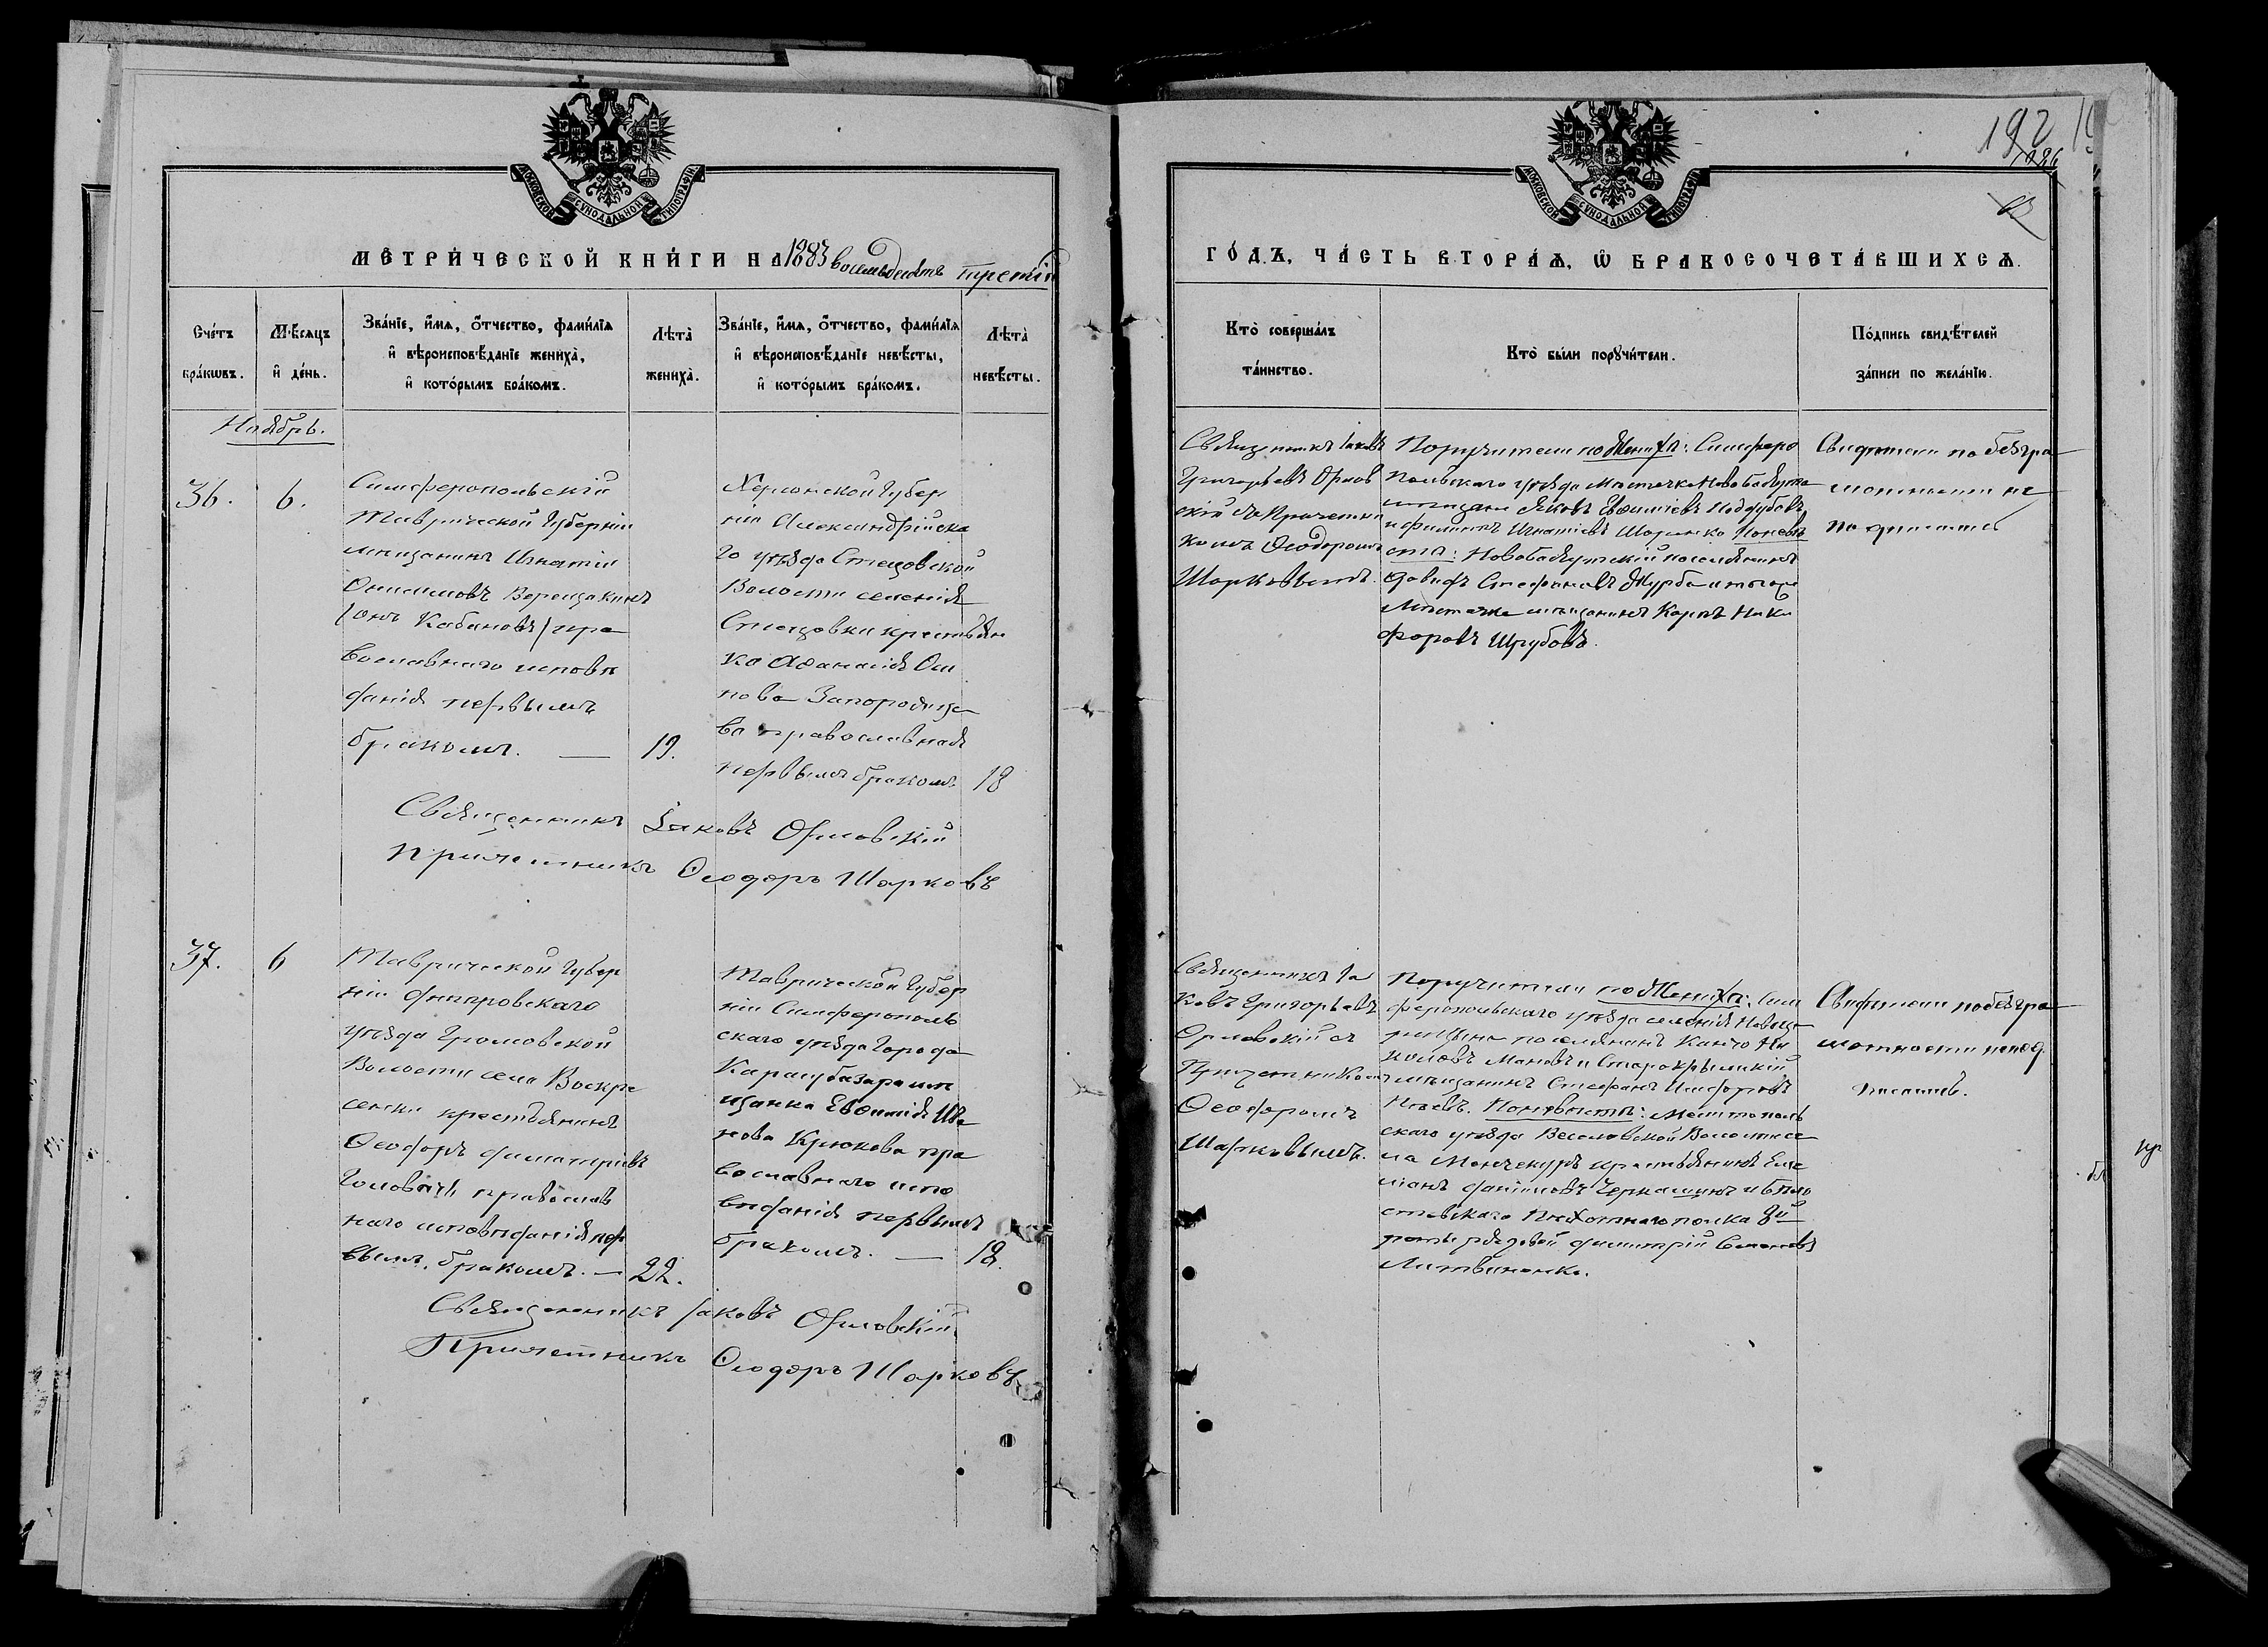 МОСКОВСКОЙ СѴНОДАЛЬНОЙ ТИПОГРАФІИ
МЕТРИЧЕСКОЙ КНИГИ НА 1883 восемьдесятъ третій
Счетъ браковъ.
Мѣсяцъ и день.
Званіе, имя, отчество, фамилія
и вѣроисповѣданіе жениха,
и которымъ бракомъ.
Лѣта
жениха.
Званіе, имя, отчество, фамилія
и вѣроисповѣданіе невѣсты,
и которымъ бракомъ.
Лѣта
невѣсты.
Ноябрь.
36.
6.
Симферопольскій
Таврической Губерніи
мѣщанинъ Игнатій
Онисимовъ Верещакинъ
(онъ Кабановъ) пра
вославнаго исповѣ
данія первымъ
бракомъ. —
19.
Херсонской Губер
ніи Александрійска
го уѣзда Стецовской
Волости селенія
Стецовки крестьян
ка Аѳанасія Оси
пова Запорожце
ва православная
первымъ бракомъ
18
Священникъ Іаковъ Орловскій
Причетникъ Ѳеодоръ Шарковъ
37.
6
Таврической Губер
ніи Днѣпровскаго
уѣзда Громовской
Волости села Воскре
сенки крестьянинъ
Ѳеодоръ Димитріевъ
православ
наго исповѣданія пер
вымъ бракомъ. —
22.
Таврической Губер
ніи Симферополь
скаго уѣзда Города
Карасубазара мѣ
щанка Евѳимія Ива
нова Крюкова пра
вославнаго испо
вѣданія первымъ
бракомъ. —
18.
Священникъ Іаковъ Орловскій
Причетникъ Ѳеодоръ Шарковъ
192
МОСКОВСКОЙ СѴНОДАЛЬНОЙ ТИПОГРАФІИ
ГОДЪ, ЧАСТЬ ВТОРАЯ, Ѡ БРАКОСОЧЕТАВШИХСЯ.
Кто совершалъ
таинство.
Кто были поручители.
Подпись свидѣтелей
записи по желанію.
Священникъ Іаковъ
Григорьевъ Орлов
скій съ Причетни
комъ Ѳеодоромъ
Шарковымъ.
Поручители по Женихѣ: Симферо
польскаго уѣзда Мѣстечка
мѣщане Яковъ Евѳиміевъ
и Филиппъ Игнатіевъ По невѣ
стѣ: поселянинъ
Давидъ Стефановъ Журба и того же
Мѣстечка мѣщанинъ Карпъ Ники
форовъ
Свидѣтели по безгра
мотности не
подписались
Священникъ Іа
ковъ Григорьевъ
Орловскій съ
Причетникомъ
Ѳеодоромъ
Шарковымъ.
Поручители по Женихѣ: Сим
феропольскаго уѣзда селенія
поселянинъ Ни
колаевъ и Старокрымскій
мѣщанинъ Стефанъ
По невѣстѣ: Мелитополь
скаго уѣзда Веселовской Волости се
ла крестьянинъ Еме
ліанъ Даниловъ Черкашинъ и Бѣло
стокскаго Пѣхотнаго полка 8й
роты рядовой Димитрій
Литвиненко.
Свидѣтели по безгра
мотности непод
писались.